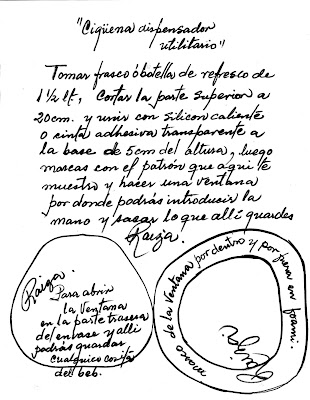 "Cigüena dispensador
utilitario"
Tomar frasco ó botella de refresco de
1½ lt, Cortar la parte superior a
20cm. y unir con silicon caliente
o cinta adhesiva transparente a
la base de 5cm del altura, luego
marcas con el patrón que aqui te
muestro y hacer una ventana
por donde podrás introducir la
mano y sacar lo que allí guardes
Raiza.
Raiza.
Para abrir
la ventana
en la parte trasera
del envase y alli
podrás guardar
cualquier
del beb.
marco de la ventana por dentro y por fuera en foami.
Raiza.